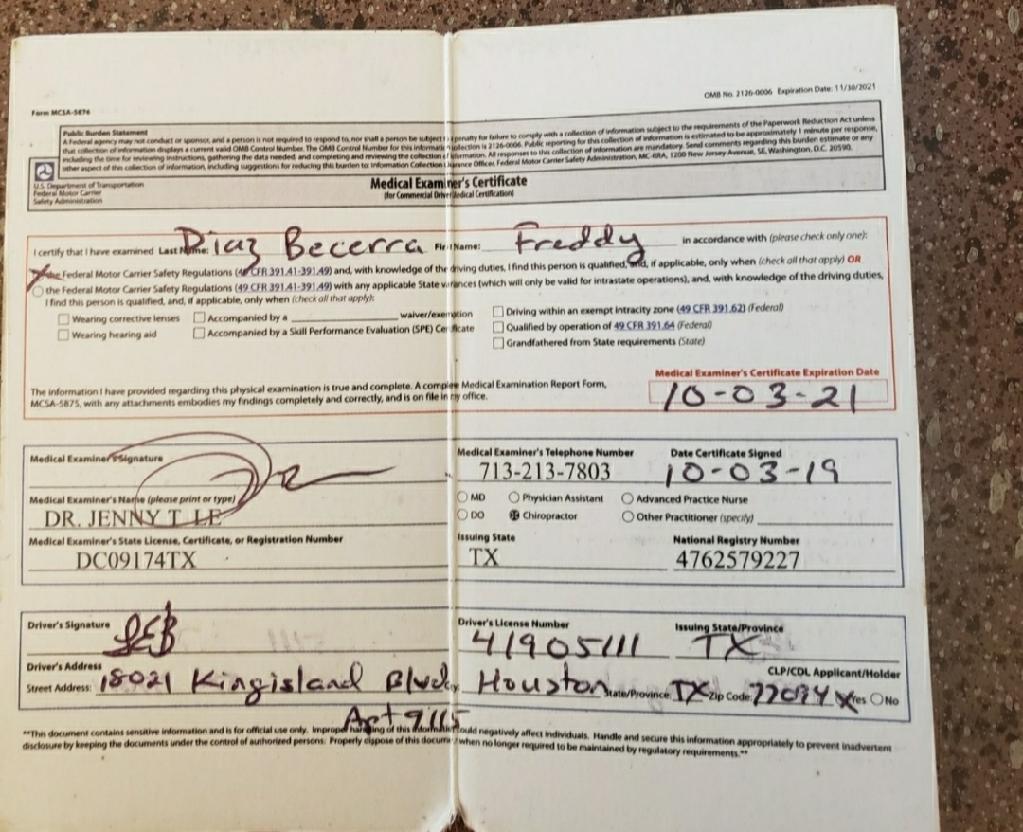 Form MCSA-5876
OMB No. 2126-0006 Expiration Date: 11/30/2021
Public Burden Statement
A Federal agency may not conduct or sponsor, and a person is not required to respond to, nor shall a person be subject to a penalty for failure to comply with a collection of information subject to the requirements of the Paperwork Reduction Act unless
that collection of information displays a current valid OMB Control Number. The OMB Control Number for this information collection is 2126-0006. Public reporting for this collection of information is estimated to be approximately 1 minute per response,
including the time for reviewing instructions, gathering the data needed and completing and reviewing the collection of information. All responses to this collection of information are mandatory. Send comments regarding this burden estimate or any
other aspect of this collection of information, including suggestions for reducing this burden to Information Collection Clearance Officer, Federal Motor Carrier Safety Administration, MC-RRA, 1200 New Jersey Avenue, SE, Washington, D.C. 20590.
U.S. Department of Transportation
Federal Motor Carrier
Safety Administration
Medical Examiner's Certificate
(for Commercial Driver Medical Certification)
I certify that I have examined Last Name: Diaz Becerra First Name: Freddy in accordance with (please check only one):
the Federal Motor Carrier Safety Regulations (49 CFR 391.41-391.49) and, with knowledge of the driving duties, I find this person is qualified, and, if applicable, only when (check all that apply) OR
the Federal Motor Carrier Safety Regulations (49 CFR 391.41-391.49) with any applicable State variances (which will only be valid for intrastate operations), and, with knowledge of the driving duties,
I find this person is qualified, and, if applicable, only when (check all that apply):
Wearing corrective lenses Accompanied by a waiver/exemption Driving within an exempt intracity zone (49 CFR 391.62) (Federal)
Wearing hearing aid Accompanied by a Skill Performance Evaluation (SPE) Certificate Qualified by operation of 49 CFR 391.64 (Federal)
Grandfathered from State requirements (State)
The information I have provided regarding this physical examination is true and complete. A complete Medical Examination Report Form,
MCSA-5875, with any attachments embodies my findings completely and correctly, and is on file in my office.
Medical Examiner's Certificate Expiration Date
10-03-21
Medical Examiner's Signature Medical Examiner's Telephone Number Date Certificate Signed
713-213-7803 10-03-19
Medical Examiner's Name (please print or type) MD Physician Assistant Advanced Practice Nurse
DR. JENNY T LE DO Chiropractor Other Practitioner (specify)
Medical Examiner's State License, Certificate, or Registration Number Issuing State National Registry Number
DC09174TX TX 4762579227
Driver's Signature Driver's License Number Issuing State/Province
41905111 TX
Driver's Address CLP/CDL Applicant/Holder
Street Address: 18021 Kingisland Blvd Houston State/Province: TX Zip Code: Yes No
Apt 9115
**This document contains sensitive information and is for official use only. Improper handling of this information could negatively affect individuals. Handle and secure this information appropriately to prevent inadvertent
disclosure by keeping the documents under the control of authorized persons. Properly dispose of this document when no longer required to be maintained by regulatory requirements.**